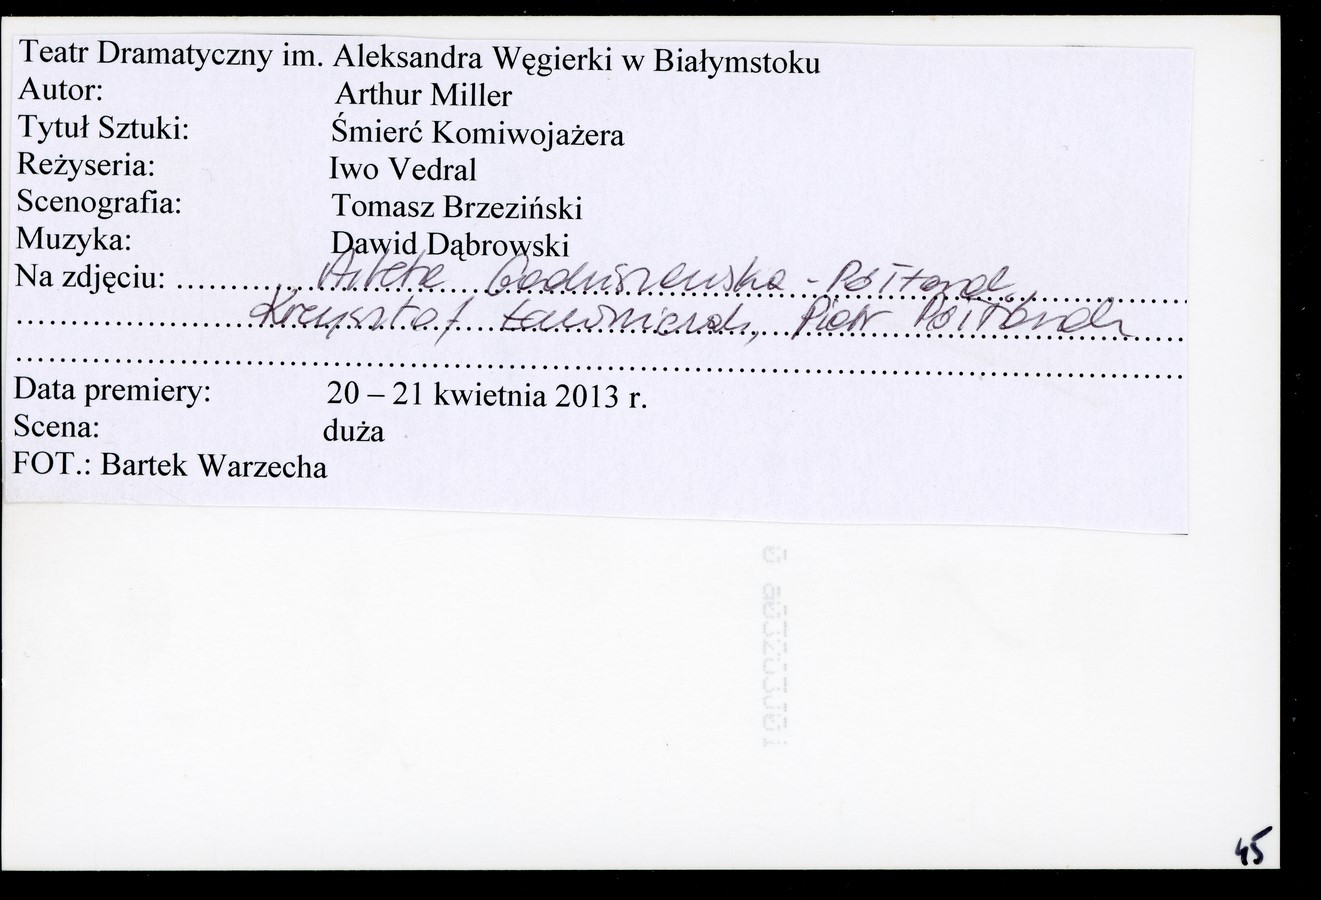 Teatr Dramatyczny im. Aleksandra Węgierki w Białymstoku
Autor: Arthur Miller
Tytuł Sztuki: Śmierć Komiwojażera
Reżyseria: Iwo Vedral
Scenografia: Tomasz Brzeziński
Muzyka: Dawid Dąbrowski
Na zdjęciu: Arleta Godziszewska - Półtorak,
Krzysztof Ławniczak, Piotr Półtorak
Data premiery: 20 – 21 kwietnia 2013 r.
Scena: duża
FOT.: Bartek Warzecha
45